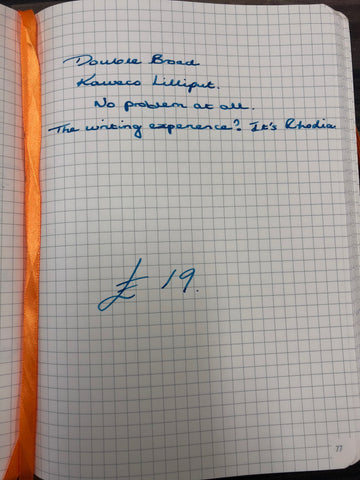 Double Broad
Kaweco Lilliput.
No problem at all.
The writing experence? It's Rhodia
£ 19.
77